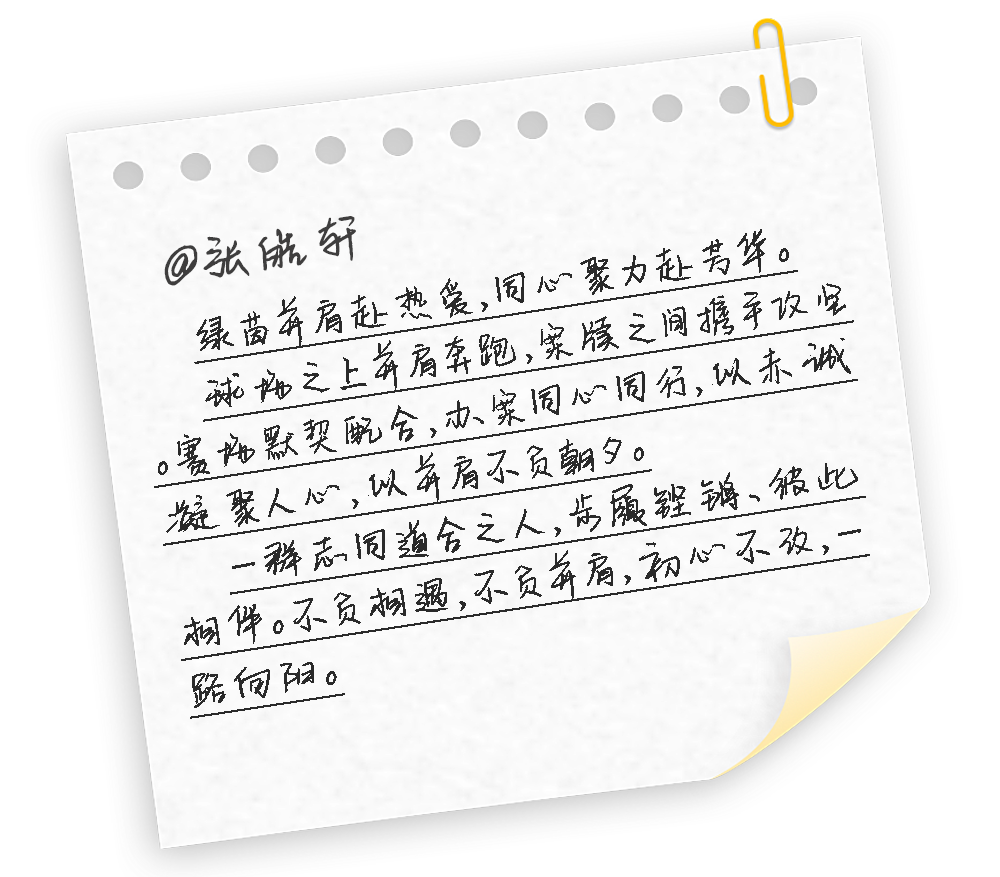 @张皓轩
绿茵并肩赴热爱,同心聚力赴芳华。
球场之上并肩奔跑,案牍之间携手攻坚
。赛场默契配合,办案同心同行,以赤诚
凝聚人心,以并肩不负朝夕。
一群志同道合之人,步履铿锵、彼此
相伴。不负相遇,不负并肩,初心不改,一
路向阳。